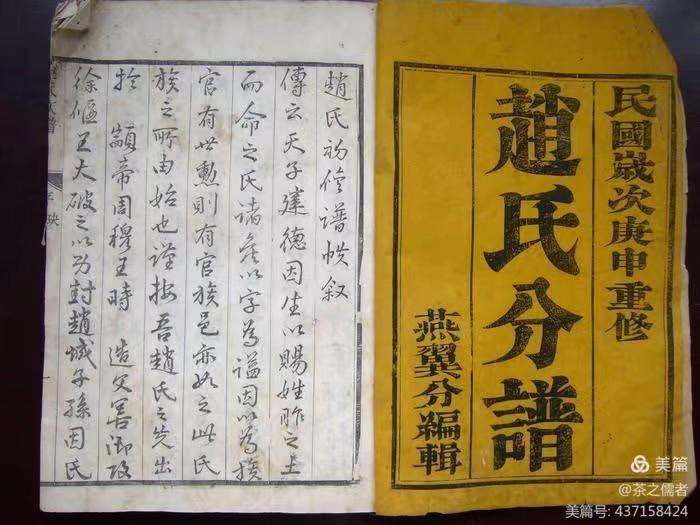 民國歲次庚申重修
趙氏分譜
燕翼分編輯
趙氏初修譜帙叙
傳云天子建德因生以賜姓胙之土
而命之氏諸侯以字為謚因以為族
官有世勲則有官族邑亦如之此氏
族之所由始也謹按吾趙氏之先出
於 顓帝周穆王時 造父善御攻
徐偃王大破之以功封趙城子孫因氏
美篇
@茶之儒者
美篇号: 437158424